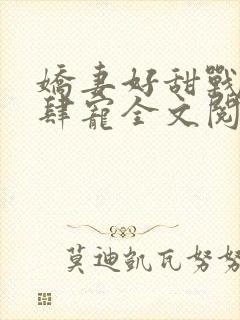 嬌妻好甜戰
肆寵全文閱
莫迪凱瓦努努